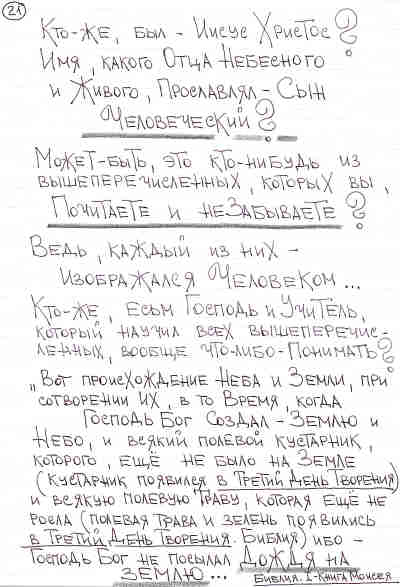 21
Кто-же, был - Иисус Христос?
Имя, какого Отца Небесного
и Живого, Прославлял - Сын
Человеческий?
Может-быть, это кто-нибудь из
вышеперечисленных, которых вы,
Почитаете и неЗабываете?
Ведь, каждый из них -
Изображался Человеком...
Кто-же, Есьм Господь и Учитель,
который научил всех вышеперечис-
ленных, вообще что-либо - Понимать?
„Вот происхождение Неба и Земли, при
сотворении их, в то Время, когда
Господь Бог Создал - Землю и
Небо, и всякий полевой кустарник,
которого, ещё не было на Земле
(кустарник появился в Третий День Творения)
и всякую полевую траву, которая ещё не
росла (полевая трава и зелень появились
в Третий День Творения. Библия) ибо -
Господь Бог не посылал Дождя на
Землю... Библия. 1-Книга Моисея